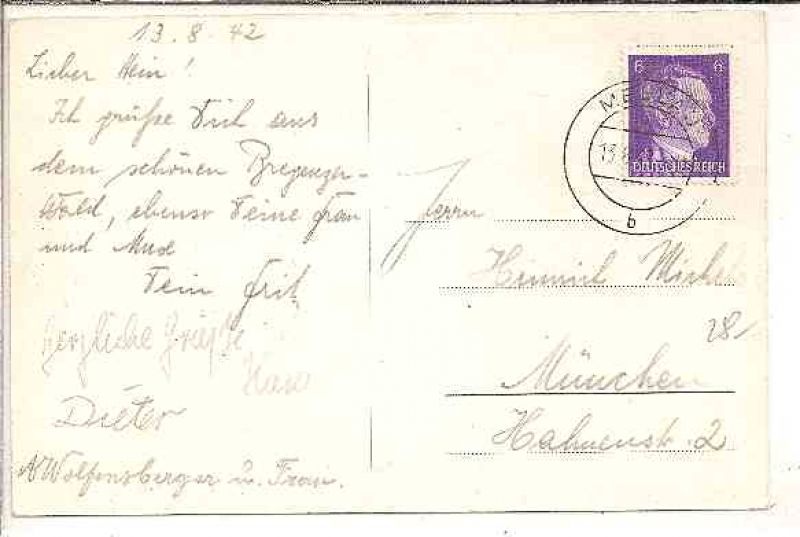 13.8.42
Lieber Hein!
Ich grüße Dich aus
dem schönen Bregenzer-
Wald, ebenso Deine Frau
und
Dein Fritz
herzliche Grüße
Dieter
Wolfensberger u. Frau.
6 6
DEUTSCHES REICH
b
Herrn
Heinrich
28
München
2